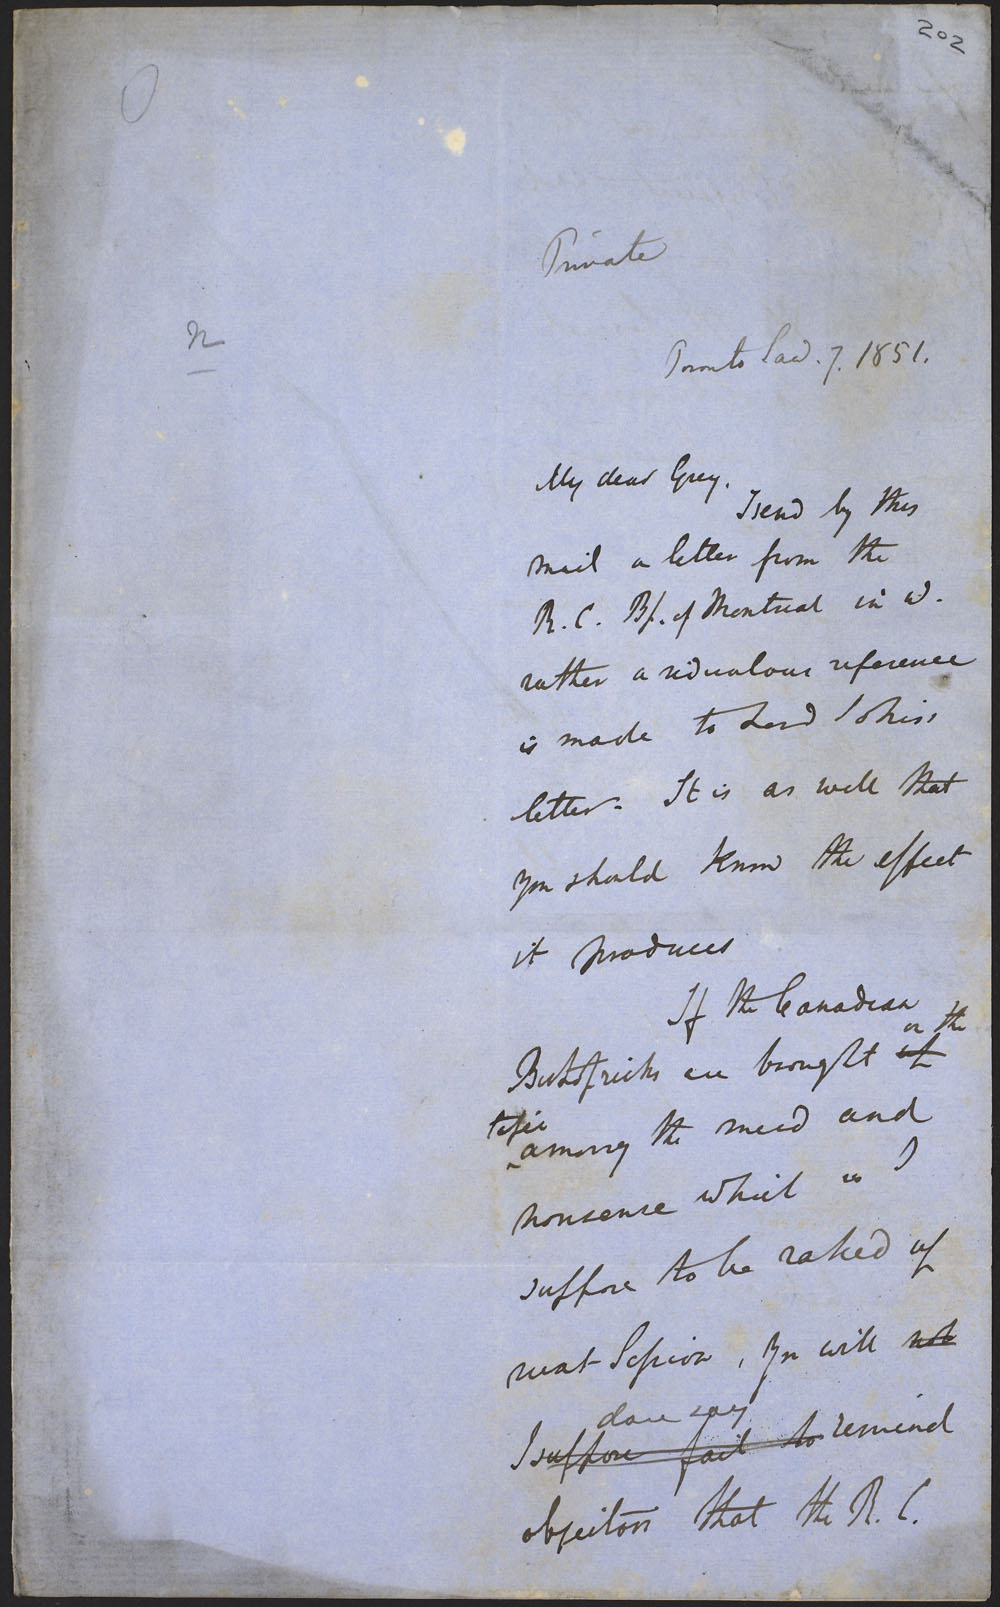 202
Private
n
Toronto Jan. 7. 1851.
My dear Grey.
I send by this
mail a letter from the
R. C. Bp. of Montreal in wh.
rather a ridiculous reference
is made to Lord John's
letter. It is as well that
you should know the effect
it produces
If the Canadian
on the
Bishopricks are brought up
tapis
among the mud and
nonsense which is I
suppose to be raked up
next Session, you will not
dare say
I suppose fail to remind
objectors that the R. C.